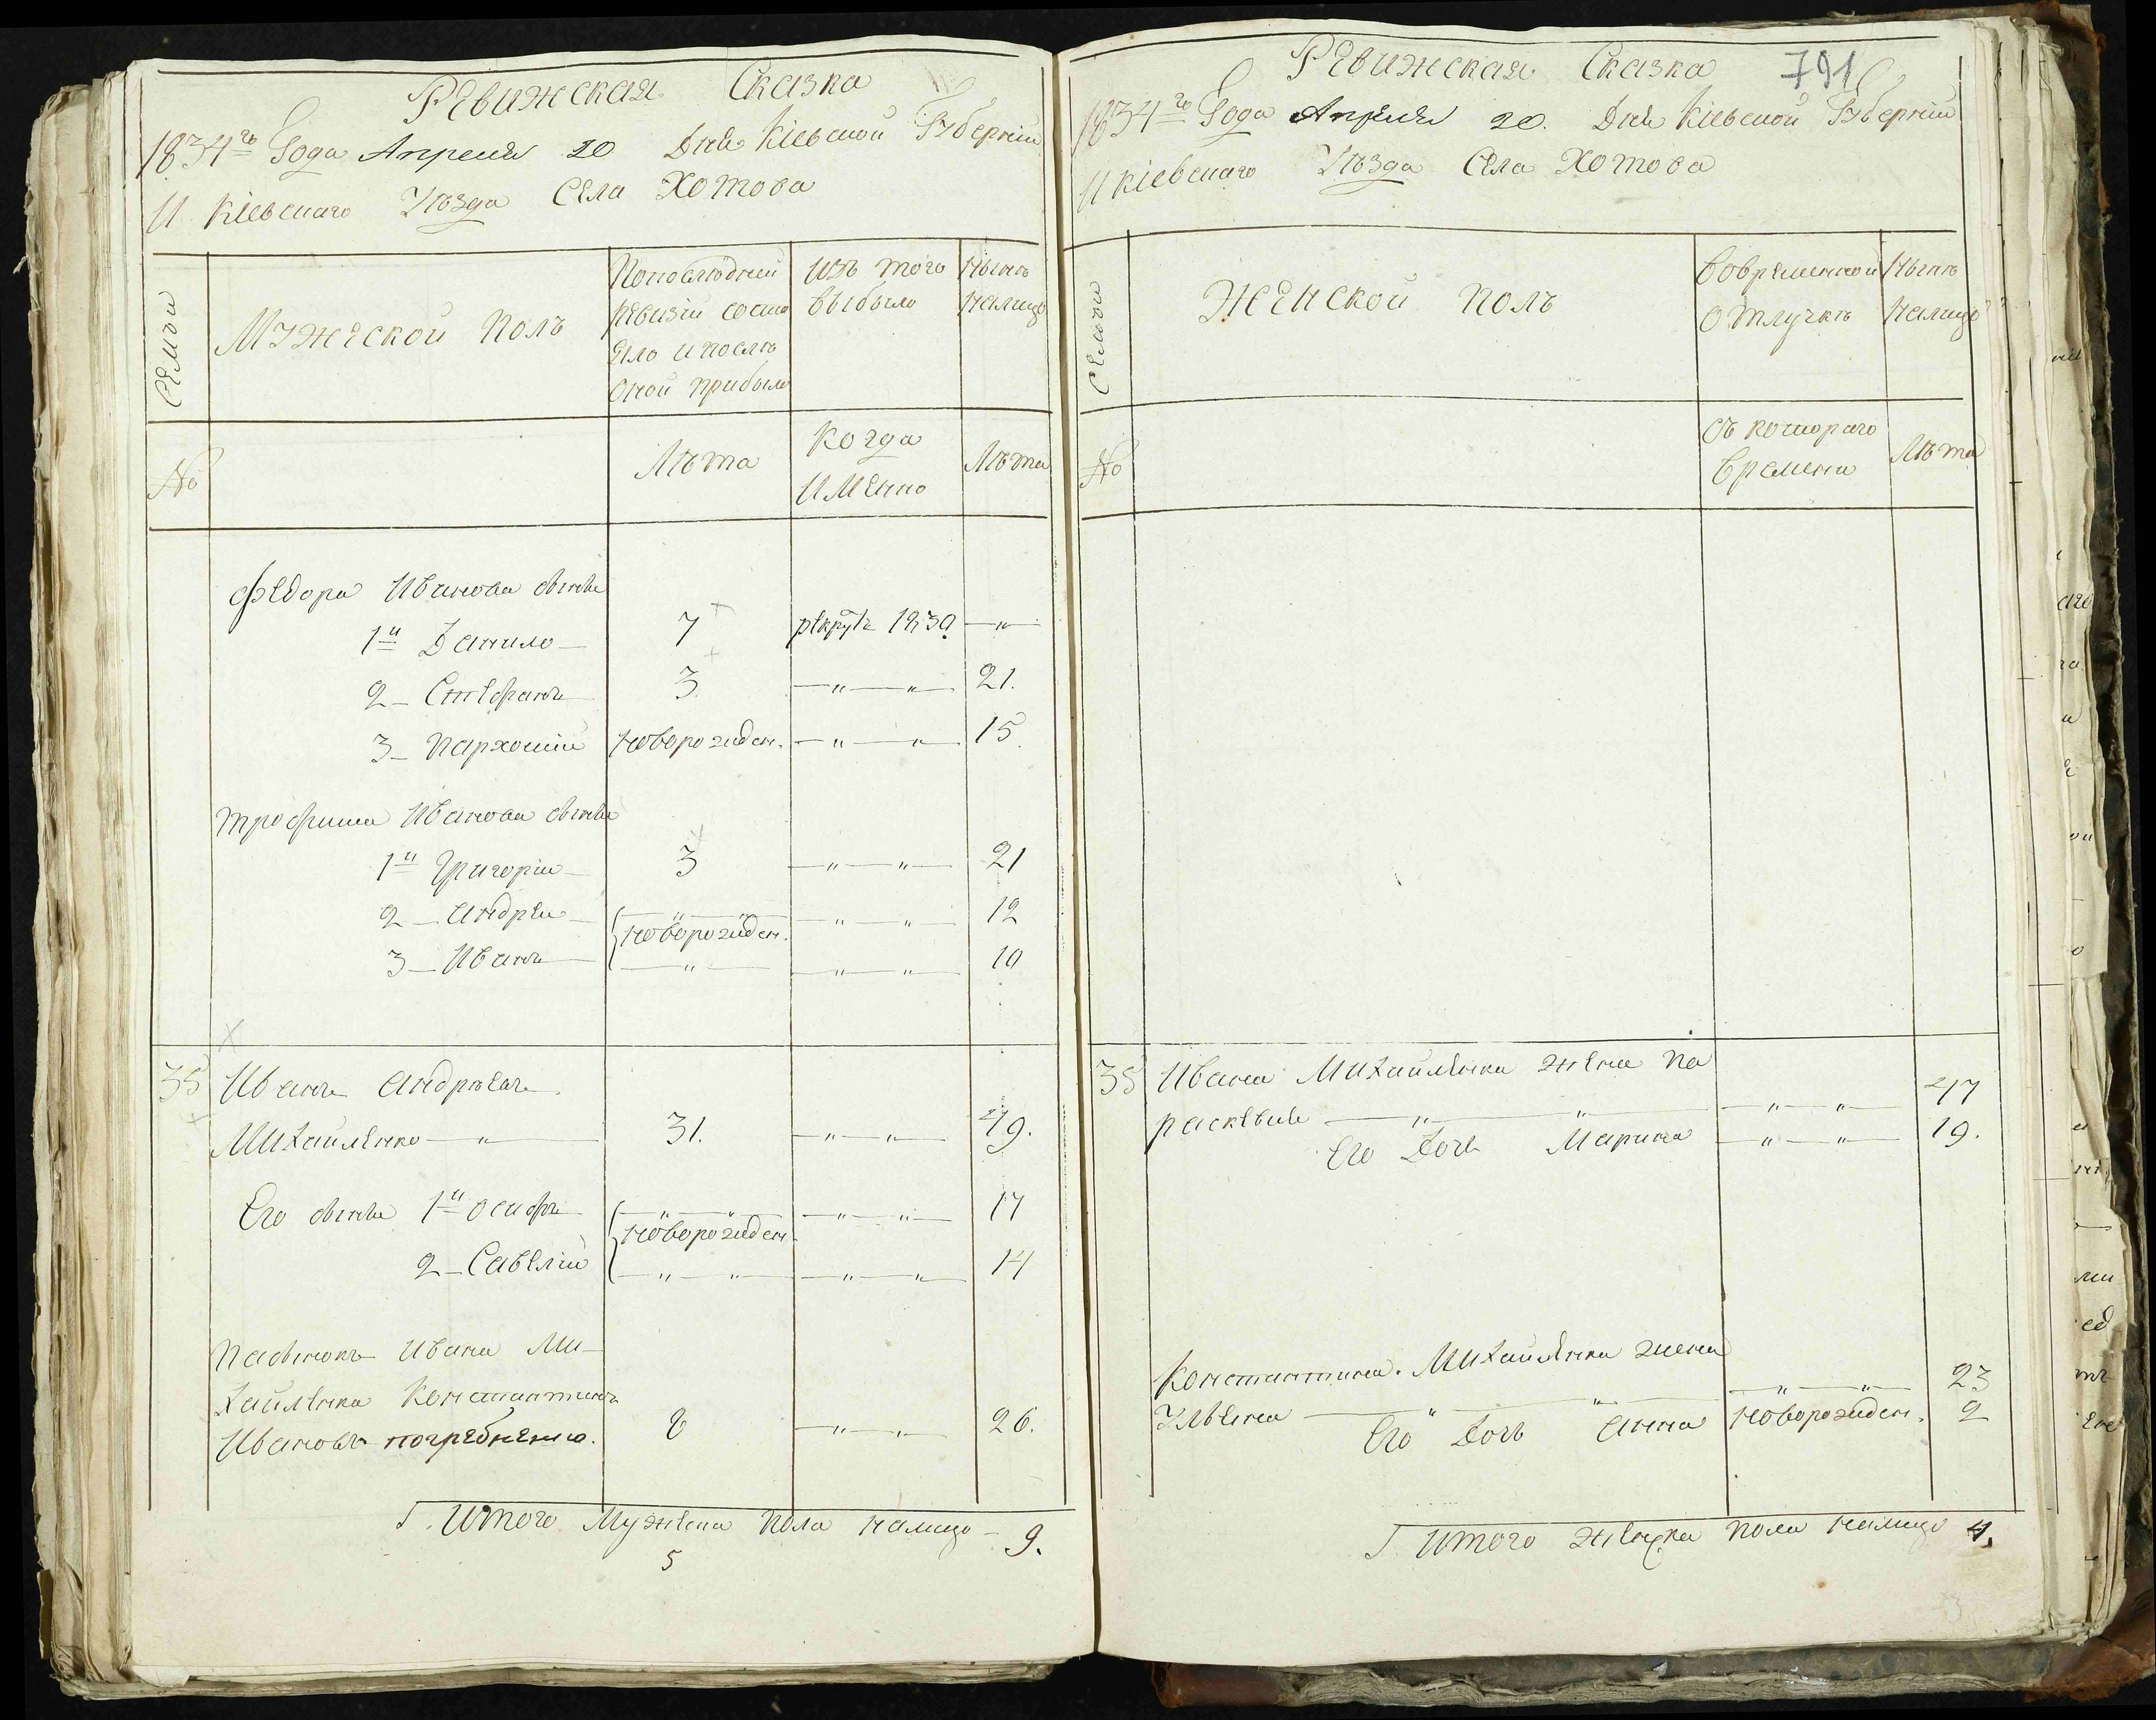 Ревижская Сказка
1834го Года Апреля 20 Дня Кіевской Губерніи
И Кіевскаго Уѣзда Села Хотова
Семьи
Мужеской Полъ
Попоследней
ревизіи состо
яло и послѣ
оной прибыло
Изъ того
выбыло
Нынѣ
налицо
№
Лѣта
Когда
Именно
Лѣта
Федора Иванова сыновья
1й Данило 7 рекрутъ 1830 — " —
2 — Стефанъ 3 — " — " — 21.
3 — Пархомій новорожден. — " — " — 15.
Трофима Иванова сыновья
1й Григорій 3 — " — " — 21
2 — Андрей — " — " — — " — " — 12
новорожден.
3 — Иванъ — " — — " — " — 10
35 Иванъ Андрѣевъ
Михайленко — " — 31. — " — " — 49.
Его сыновья 1й Осифъ — " — " — — " — " — 17
новорожден.
2 — Савелій — " — " — — " — " — 14
Пасынокъ Ивана Ми-
хайленка Константинъ
Ивановъ погребненко. 8 — " — " — 26.
Итого Мужеска пола налицо — 9.
5
Ревижская Сказка 791
1834го Года Апреля 20. Дня Кіевской Губерніи
И Кіевскаго Уѣзда Села Хотова
Семьи
Женской полъ
Вовременной
отлучкѣ
Нынѣ
налицо
№
Съ котораго
времени
Лѣта
35 Ивана Михайленка жена Па
раскевия — " — " — — " — " — 47
Его Дочь Марина — " — " — 19.
Константина Михайленка жена
Ульяна — " — " — — " — " — 23
Его Дочь Анна новорожден. 2
Итого женска пола налицо 4.